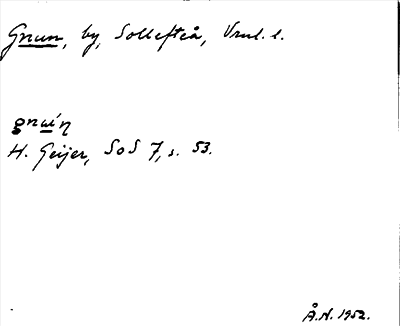 Gnun, by, Sollefteå, Vrml. l.
gnu̱i'ŋ
H. Geijer, SoS 7, s. 53.
Å.N. 1952.